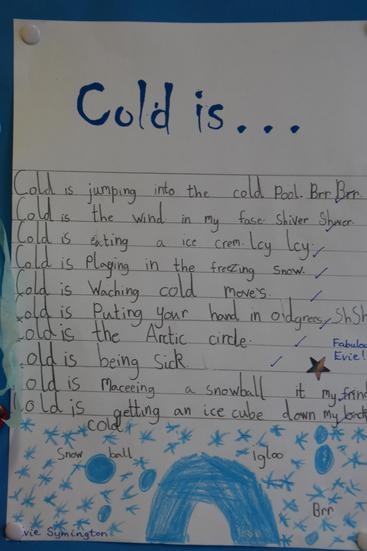 Cold is...
Cold is jumping into the cold Pool. Brr Brr
Cold is the wind in my fase Shiver Shiver
Cold is Eating a ice crem. Icy Icy
Cold is Playing in the freezing snow.
Cold is Waching cold move's.
Cold is Puting your hand in oldgrees ShSh
Cold is the Arctic circle.
Fabulous Evie!
Cold is being Sick.
Cold is maceeing a snowball it my friend
Cold is getting an ice cube down my back
cold
Snow ball
Igloo
Brr
Evie Symington